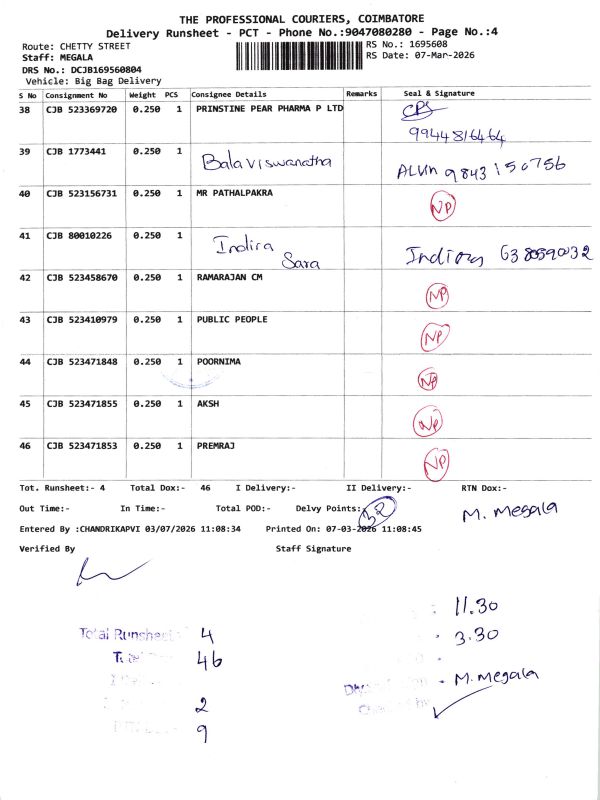 THE PROFESSIONAL COURIERS, COIMBATORE
Delivery Runsheet - PCT - Phone No.:9047080280 - Page No.:4
Route: CHETTY STREET RS No.: 1695608
Staff: MEGALA RS Date: 07-Mar-2026
DRS No.: DCJB169560804
Vehicle: Big Bag Delivery
S No Consignment No Weight PCS Consignee Details Remarks Seal & Signature
38 CJB 523369720 0.250 1 PRINSTINE PEAR PHARMA P LTD
9944816464
39 CJB 1773441 0.250 1 Balaviswanatha ALVIN 9843150756
40 CJB 523156731 0.250 1 MR PATHALPAKRA NP
41 CJB 80010226 0.250 1 Indira Sara
42 CJB 523458670 0.250 1 RAMARAJAN CM NP
43 CJB 523410979 0.250 1 PUBLIC PEOPLE NP
44 CJB 523471848 0.250 1 POORNIMA NP
45 CJB 523471855 0.250 1 AKSH NP
46 CJB 523471853 0.250 1 PREMRAJ NP
Tot. Runsheet:- 4 Total Dox:- 46 I Delivery:- II Delivery:- RTN Dox:-
Out Time:- In Time:- Total POD:- Delvy Points:- 32 M. Megala
Entered By :CHANDRIKAPVI 03/07/2026 11:08:34 Printed On: 07-03-2026 11:08:45
Verified By Staff Signature
11.30
Total Runsheet 4 3.30
46
M. Megala
2
9